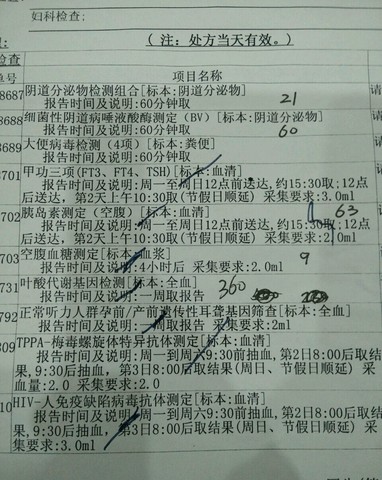 妇科检查:
（ 注: 处方当天有效。）
检查
单号 项目名称
8687 阴道分泌物检测组合[标本:阴道分泌物]
报告时间及说明:60分钟取 21
8688 细菌性阴道病唾液酸酶测定（BV）[标本:阴道分泌物]
报告时间及说明:60分钟取 60
8689 人便病毒检测（4项）[标本:粪便]
报告时间及说明:60分钟取
701 甲功三项(FT3、FT4、TSH)[标本:血清]
报告时间及说明:周一至周日12点前送达,约15:30取;12点
后送达,第2天上午10:30取(节假日顺延) 采集要求:3.0ml
702 胰岛素测定（空腹）[标本:血清] 63
报告时间及说明:周一至周日12点前送达,约15:30取;12点
后送达,第2天上午10:30取(节假日顺延) 采集要求:2.0ml
703 空腹血糖测定[标本:血浆] 9
报告时间及说明:4小时后 采集要求:2.0ml
731 叶酸代谢基因检测[标本:全血] 360
报告时间及说明:一周取报告
792 正常听力人群孕前/产前遗传性耳聋基因筛查[标本:全血]
报告时间及说明:一周取报告 采集要求:2ml
809 TPPA-梅毒螺旋体特异抗体测定[标本:血清]
报告时间及说明:周一到周六9:30前抽血,第2日8:00后取结
果,9:30后抽血,第3日8:00后取结果(周日、节假日顺延) 采
血量:2.0 采集要求:2.0
10 HIV-人免疫缺陷病毒抗体测定[标本:血清]
报告时间及说明:周一到周六9:30前抽血,第2日8:00后取结
果,9:30后抽血,第3日8:00后取结果(周日、节假日顺延) 采
集要求:3.0ml